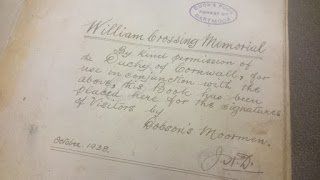 DUCK'S POOL
DARTMOOR
William Crossing Memorial
By kind permission of
the Duchy of Cornwall, for
use in conjunction with the
above, this Book has been
placed here for the signatures
of Visitors by
Dobson's Moormen.
October 1938.